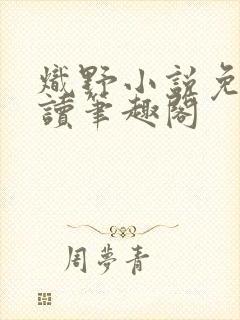 熾野小說免
讀筆趣閣
周夢青